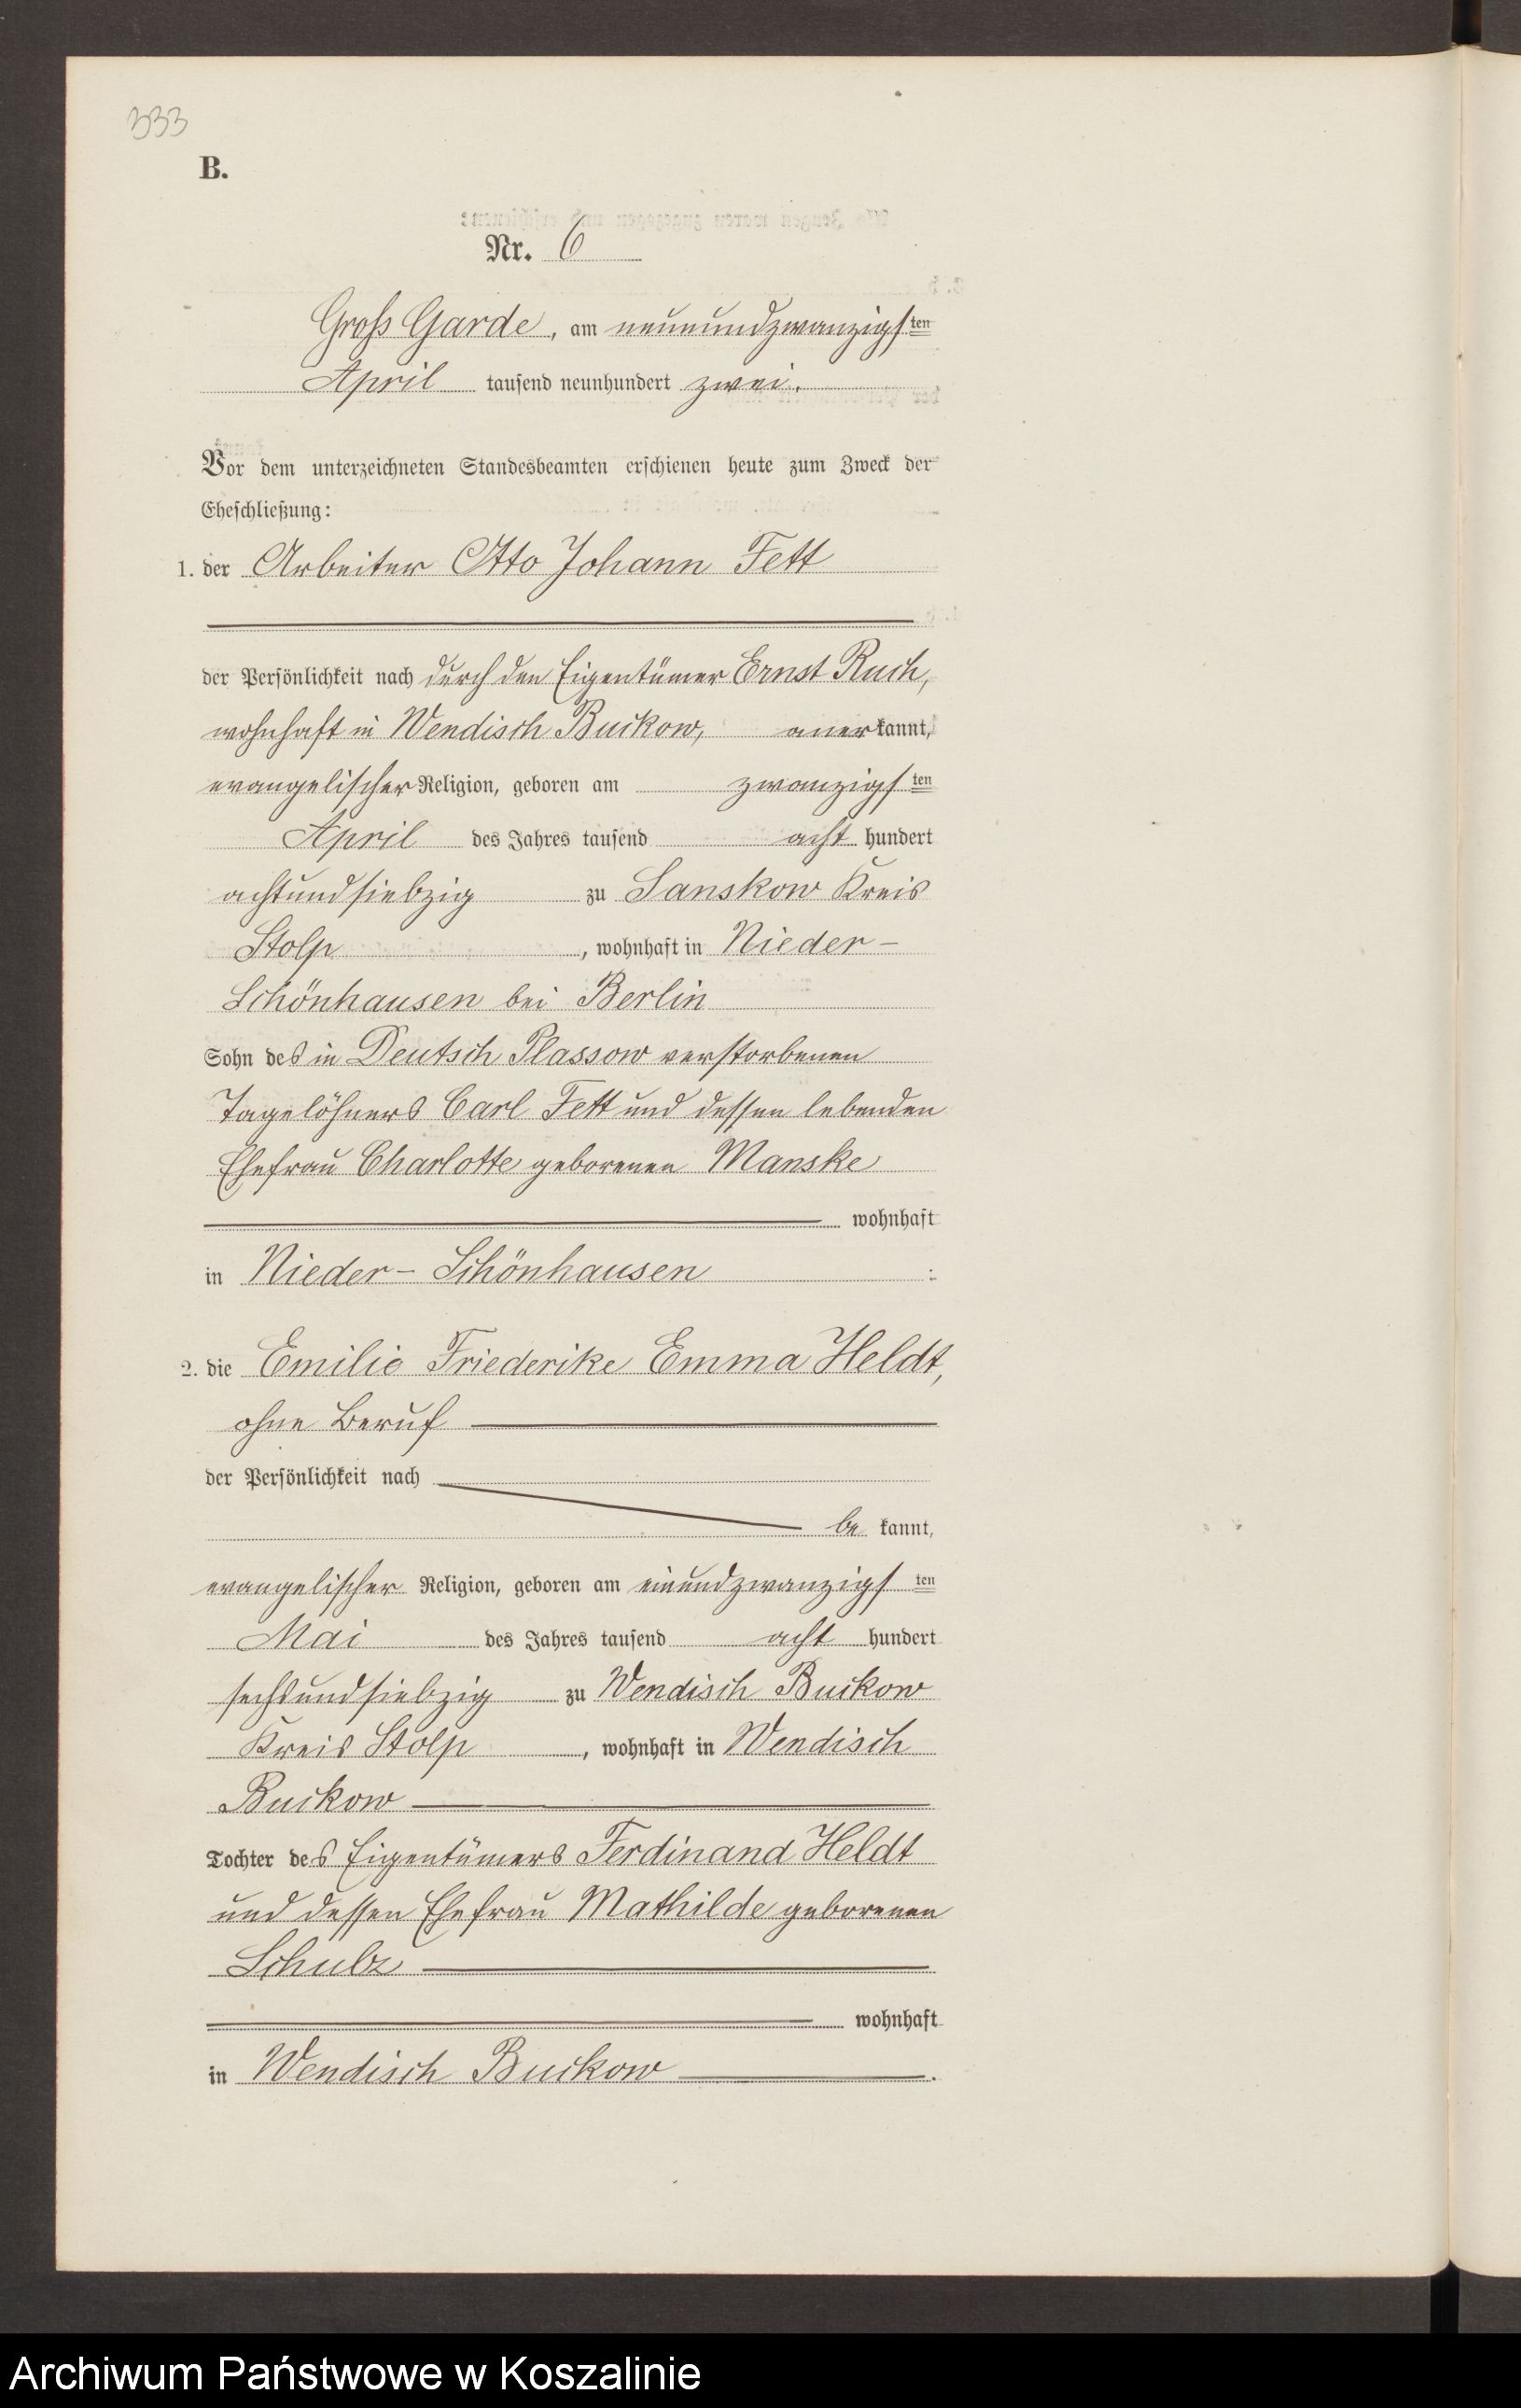 333
B.
Nr. 6
Groß Garde, am neunundzwanzigsten
April tausend neunhundert zwei.
Vor dem unterzeichneten Standesbeamten erschienen heute zum Zweck der
Eheschließung:
1. der Arbeiter Otto Johann Fett
der Persönlichkeit nach durch den Eigentümer Ernst Ruch,
wohnhaft in Wendisch Buckow, anerkannt,
evangelischer Religion, geboren am zwanzigsten
April des Jahres tausend acht hundert
achtundsiebzig zu Sanskow Kreis
Stolp, wohnhaft in Nieder-
Schönhausen bei Berlin
Sohn des in Deutsch Plassow verstorbenen
Tagelöhners Carl Fett und dessen lebenden
Ehefrau Charlotte geborenen Manske
wohnhaft
in Nieder-Schönhausen :
2. die Emilie Friederike Emma Heldt,
ohne Beruf
der Persönlichkeit nach
be kannt,
evangelischer Religion, geboren am einundzwanzigsten
Mai des Jahres tausend acht hundert
sechsundsiebzig zu Wendisch Buckow
Kreis Stolp, wohnhaft in Wendisch
Buckow
Tochter des Eigentümers Ferdinand Heldt
und dessen Ehefrau Mathilde geborenen
Schulz
wohnhaft
in Wendisch Buckow.
Archiwum Państwowe w Koszalinie